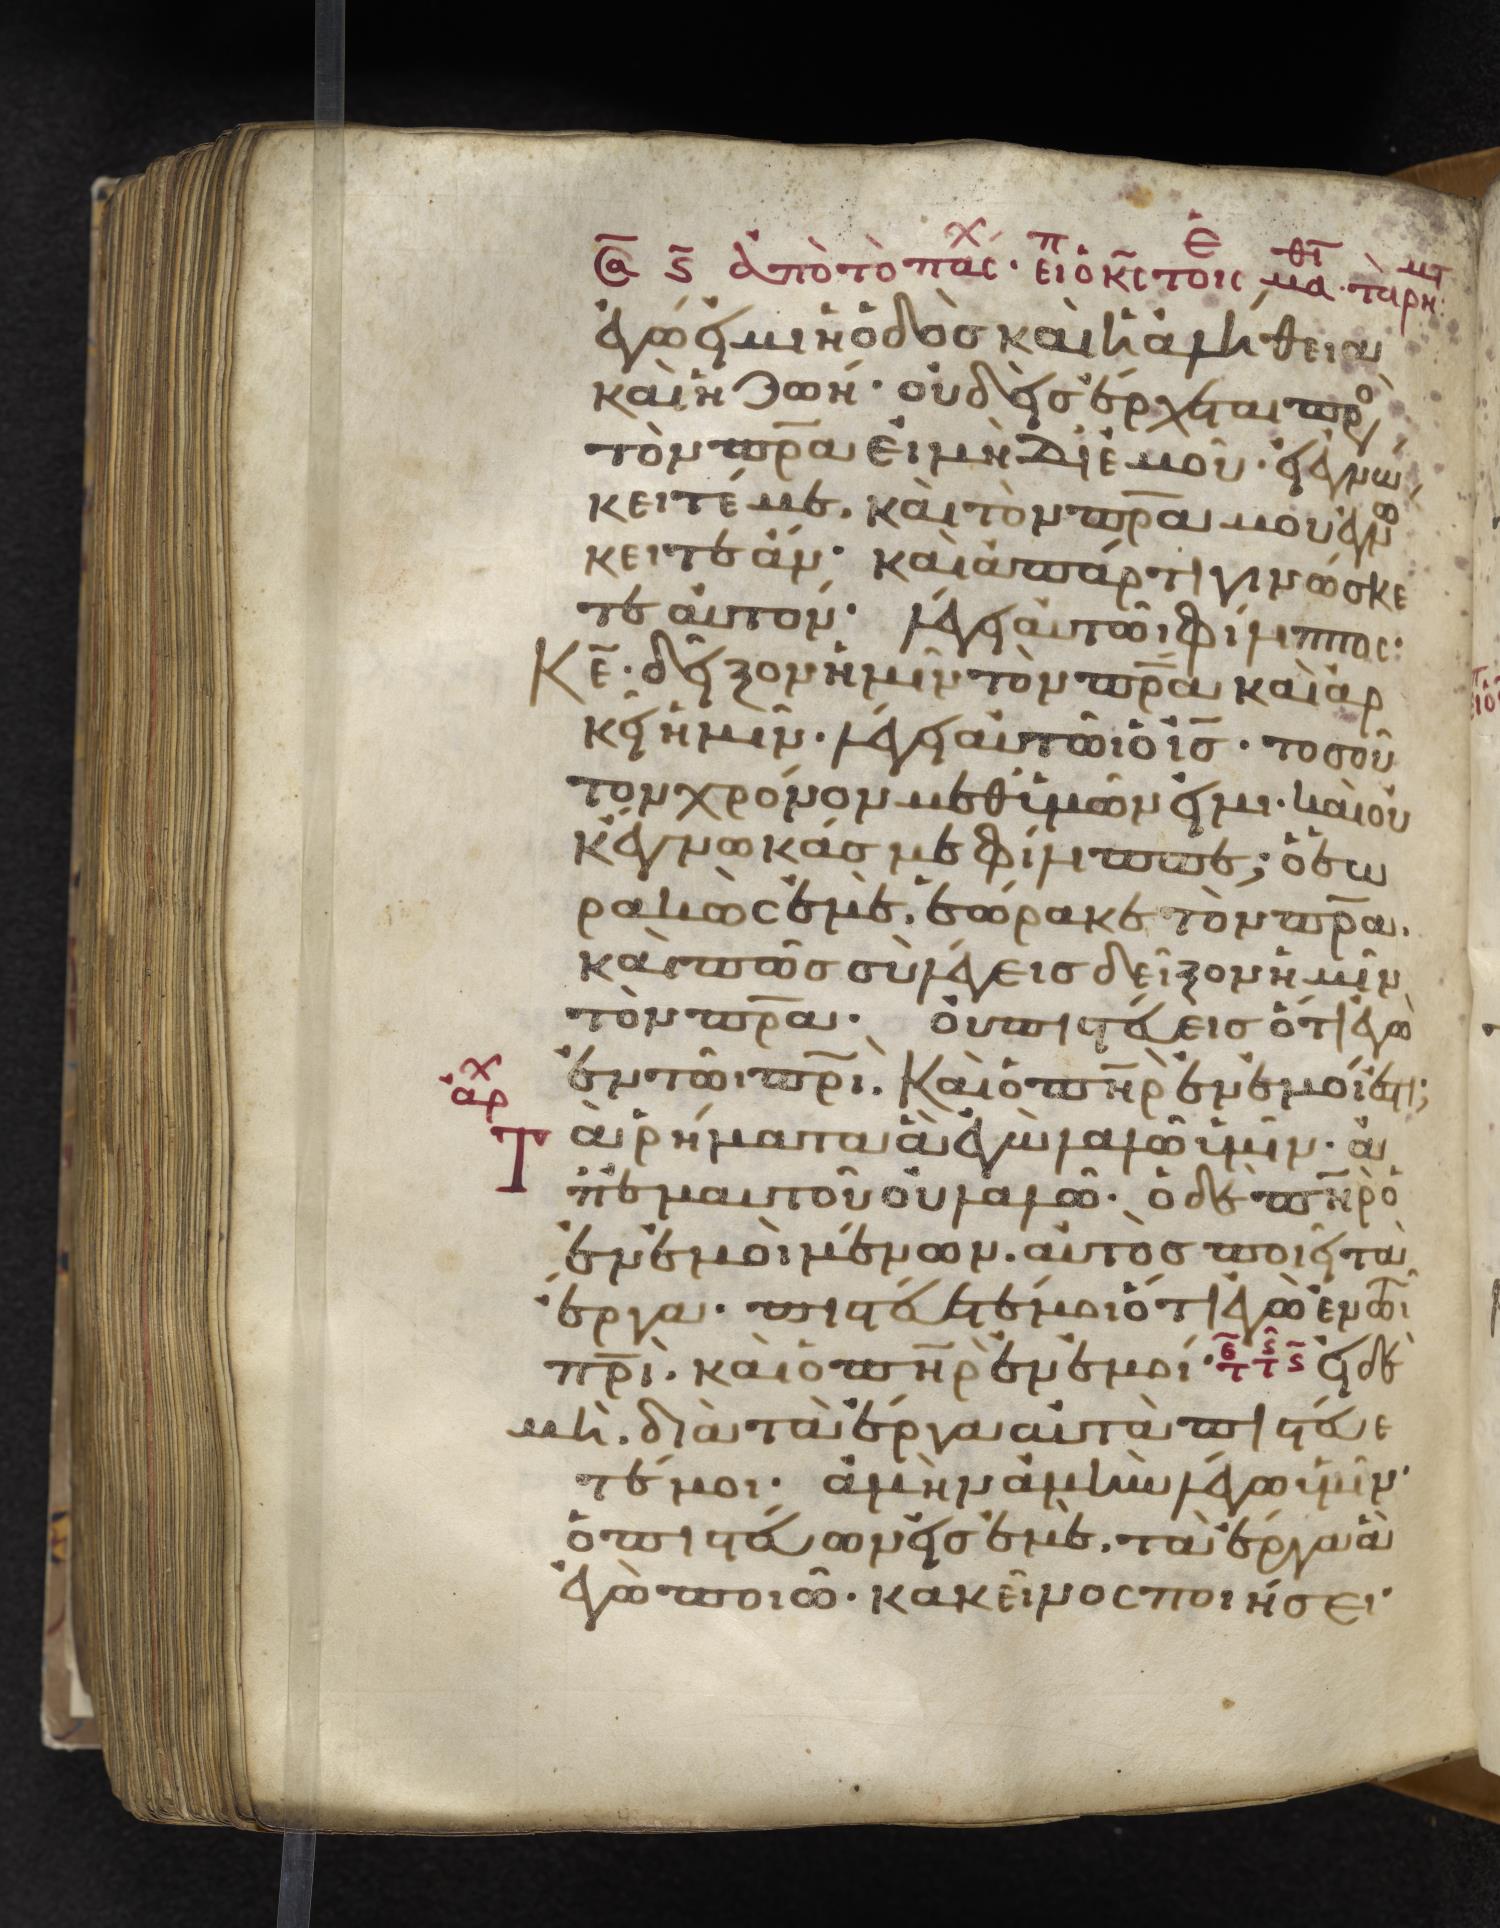 ἐγώ εἰμι ἡ ὁδὸς καὶ ἡ ἀλήθεια
καὶ ἡ ζωή· οὐδεὶς ἔρχεται πρὸς
τὸν πρα εἰ μὴ δι ἐμοῦ· εἰ ἐγνώ
κειτέ με. καὶ τὸν πρα μου ἐγνώ
κειτε ἄν· καὶ ἀπάρτι γινώσκε
τε αὐτόν· λέγει αὐτῶι φίλιππος·
Κε· δεῖξον ἡμῖν τὸν πρα καὶ ἀρ
κεῖ ἡμῖν· λέγει αὐτῶι ὁ ις· τοσοῦ
τον χρόνον μεθ ὑμῶν εἰμι· καὶ οὐ
κ ἔγνωκάς με φίλιππε; ὁ ἑω
ρακὼς ἐμὲ. ἑώρακε τὸν πρα.
καὶ πῶς σὺ λέγεις δεῖξον ἡμῖν
τὸν πρα· οὐ πιστεύεις ὅτι ἐγὼ
ἐν τῶι πρι. Καὶ ὁ πηρ ἐν ἐμοί ἐστι;
ἀρχ
Τὰ ῥήματα ἃ ἐγὼ λαλῶ ὑμῖν· ἀ
π ἐμαυτοῦ οὐ λαλῶ· ὁ δὲ πηρ ὁ
ἐν ἐμοὶ μένων. αὐτὸς ποιεῖ τὰ
ἔργα· πιστεύετέ μοι ὅτι ἐγὼ ἐν τῶι
πρι. καὶ ὁ πηρ ἐν ἐμοί· εἰ δὲ
μὴ. διὰ τὰ ἔργα αὐτὰ πιστεύε
τέ μοι· ἀμὴν ἀμὴν λέγω ὑμῖν·
ὁ πιστεύων εἰς ἐμὲ. τὰ ἔργα ἃ
ἐγὼ ποιῶ· κακεῖνος ποιήσει·